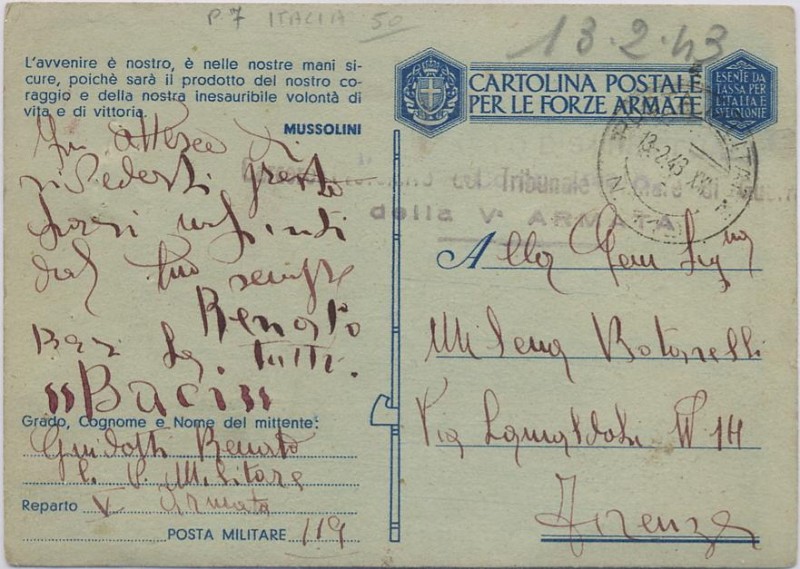 P.7 ITALIA 50
13.2.43
L'avvenire è nostro, è nelle nostre mani si-
cure, poichè sarà il prodotto del nostro co-
raggio e della nostra inesauribile volontà di
vita e di vittoria.
MUSSOLINI
In attesa di
rivederti presto
baci infiniti
dal tuo sempre
Renato
Baci tutti.
"Baci"
Grado, Cognome e Nome del mittente:
Guidotti Renato
C. P. Militare
Reparto V Armata
POSTA MILITARE 119
CARTOLINA POSTALE
PER LE FORZE ARMATE
ESENTE DA
TASSA PER
L'ITALIA E
SUE COLONIE
13.2.43 XXI
Tribunale
della Vª ARMATA
Alla Gen Sigᵐᵃ
Milena Botarelli
Via Camaldoli N 14
Firenze